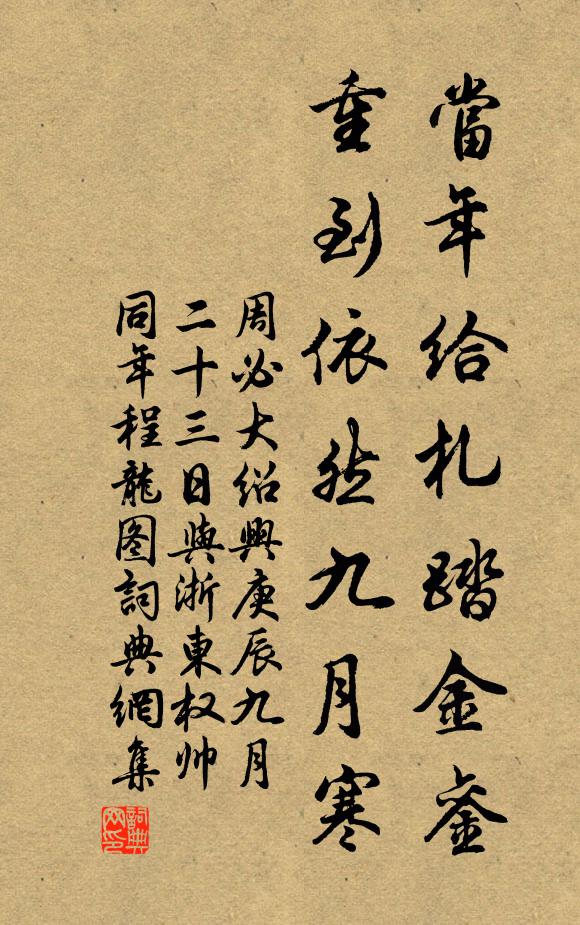 當年給札踏金銮
重到依然九月寒
周必大紹興庚辰九月
二十三日與浙東权帅
同年程龍图詞典網集
詞典网印